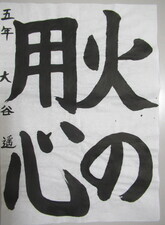 火の
用心
五年 大谷 遥